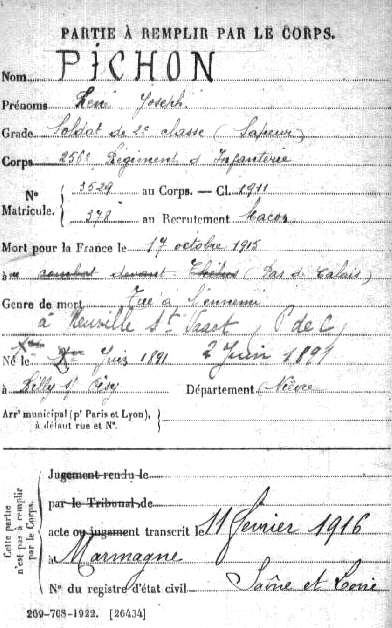 PARTIE À REMPLIR PAR LE CORPS.
Nom PICHON
Prénoms René Joseph
Grade Soldat de 2e classe (Sapeur)
Corps 256e Régiment d'Infanterie
N° Matricule. 3529 au Corps. — Cl. 1911
378 au Recrutement Macon
Mort pour la France le 17 octobre 1915
au combat devant (Pas de Calais)
Genre de mort Tué à l'ennemi
à Neuville St Vaast, P de C,
Né le Juin 1891 2 Juin 1891
à Département Nièvre
Arrt municipal (pr Paris et Lyon), à défaut rue et N°.
Cette partie n'est pas à remplir par le Corps.
Jugement rendu le
par le Tribunal de
acte ou jugement transcrit le 11 février 1916
à Marmagne
N° du registre d'état civil Saône et Loire
209-708-1922. [26434]